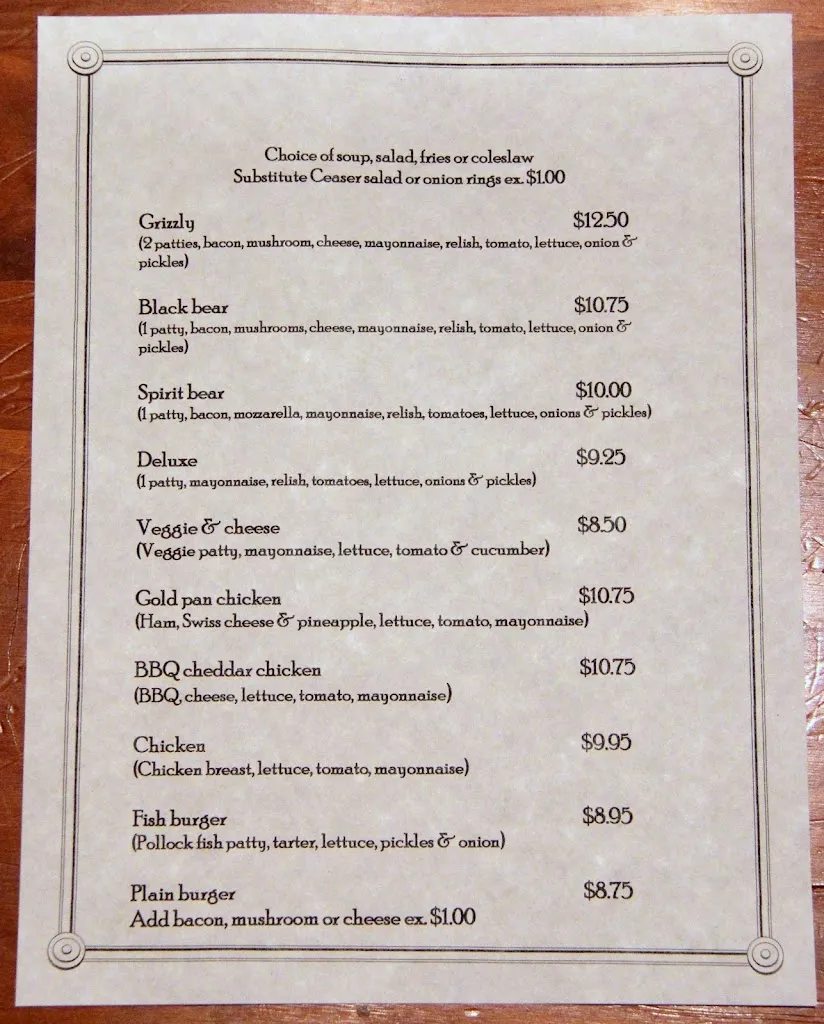 Choice of soup, salad, fries or coleslaw
Substitute Ceaser salad or onion rings ex. $1.00
Grizzly $12.50
(2 patties, bacon, mushroom, cheese, mayonnaise, relish, tomato, lettuce, onion &
pickles)
Black bear $10.75
(1 patty, bacon, mushrooms, cheese, mayonnaise, relish, tomato, lettuce, onion &
pickles)
Spirit bear $10.00
(1 patty, bacon, mozzarella, mayonnaise, relish, tomatoes, lettuce, onions & pickles)
Deluxe $9.25
(1 patty, mayonnaise, relish, tomatoes, lettuce, onions & pickles)
Veggie & cheese $8.50
(Veggie patty, mayonnaise, lettuce, tomato & cucumber)
Gold pan chicken $10.75
(Ham, Swiss cheese & pineapple, lettuce, tomato, mayonnaise)
BBQ cheddar chicken $10.75
(BBQ, cheese, lettuce, tomato, mayonnaise)
Chicken $9.95
(Chicken breast, lettuce, tomato, mayonnaise)
Fish burger $8.95
(Pollock fish patty, tarter, lettuce, pickles & onion)
Plain burger $8.75
Add bacon, mushroom or cheese ex. $1.00